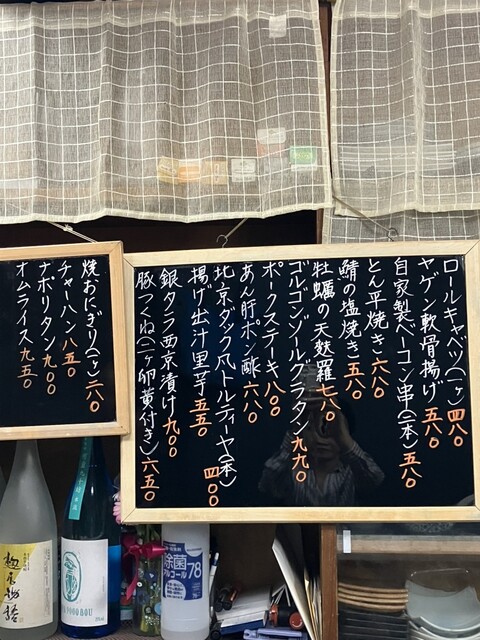 ロールキャベツ(一ヶ)四八〇
ヤゲン軟骨揚げ 五八〇
自家製ベーコン串(一本)五八〇
とん平焼き 六八〇
鯖の塩焼き 五八〇
牡蠣の天麩羅 七八〇
ゴルゴンゾーラグラタン 九九〇
ポークステーキ 八〇〇
あん肝ポン酢 六八〇
北京ダック風トルティーヤ(一本)四〇〇
揚げ出汁里芋 五五〇
銀タラ西京漬け 九〇〇
豚つくね(一ヶ卵黄付き)六五〇
焼おにぎり(一ヶ)二八〇
チャーハン 八五〇
ナポリタン 九〇〇
オムライス 九五〇
除菌
アルコール78